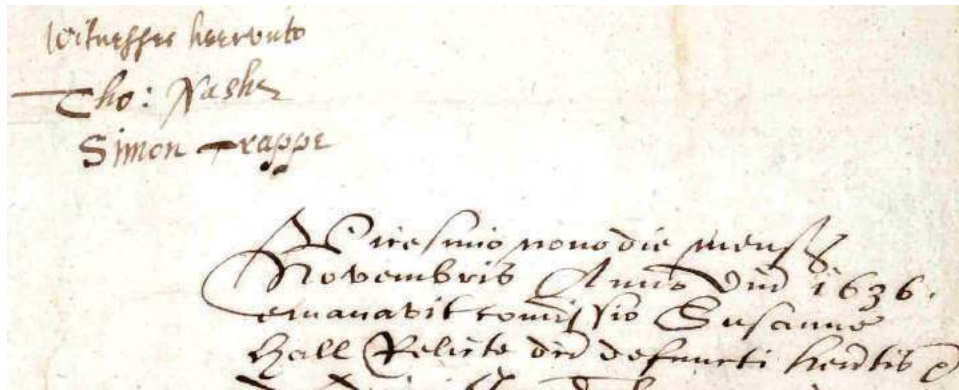 Witnesses hereunto
Tho: Nashe
Simon Trappe
Vicesimo nono die mensis
Novembris Anno Dni 1636.
emanavit comissio Susanne
Hall Relicte dti defuncti hentis